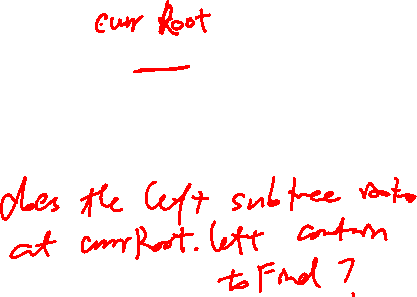 curr Root
does the left subtree rooted
at currRoot.left contain
to Find ?